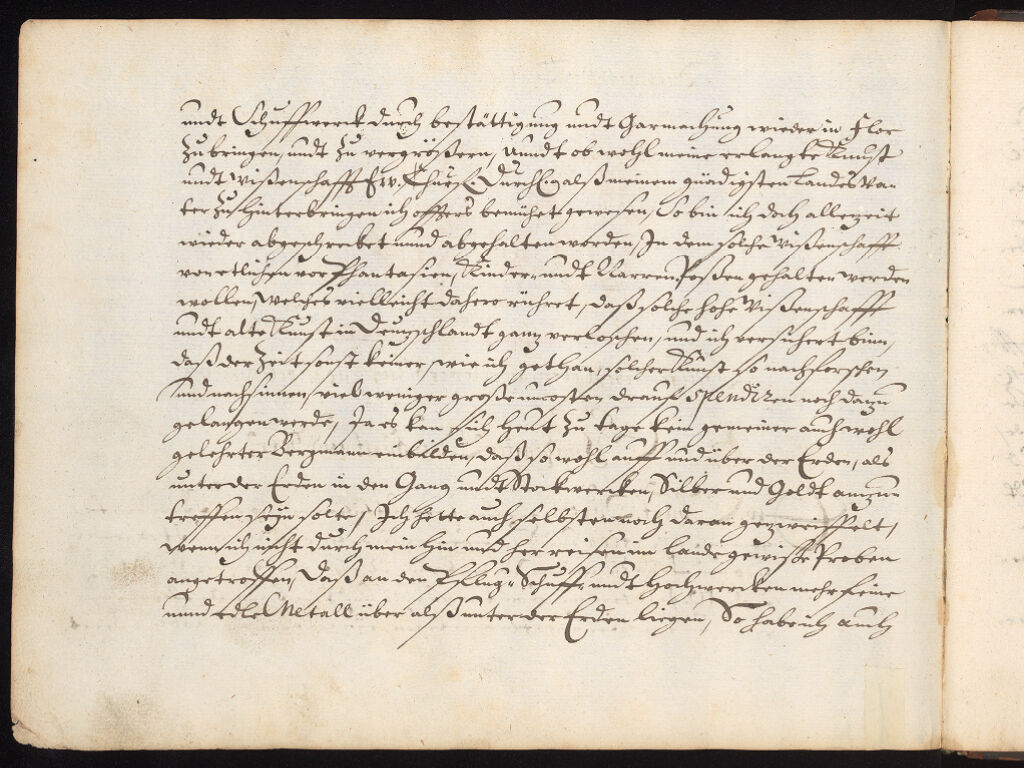 undt Schuffwerck durch bestättigung undt Garmachung wieder in Flor
zu bringen, undt zu vergrößern, Unndt ob wohl meine erlangte Kunst
undt Wißenschafft Ew. Chürf. Durchl. alß meinem gnädigsten Landes Va-
ter zu hinterbringen ich öffters bemühet gewesen, So bin ich doch allerzeit
wieder abgeschrecket unnd abgehalten worden, In dem solche Wißenschafft
von etlichen vor Phantasien, Kinder- undt Narren Poßen gehalten werden
wollen, welches vielleicht dahero rühret, daß solche hohe Wißenschafft
undt alte Kunst in Deutzschlandt ganz verloschen, und ich versichert binn,
daß der Zeit sonst keiner, wie ich gethan, solcher Kunst so nachforschen
und nachsinnen, viel weniger große uncosten drauf spendiren noch darzu
gelangen werde, Ja es kan sich heut zu tage kein gemeiner auch wohl
gelehrter Bergmann einbilden, daß so wohl auff und über der Erden, als
unter der Erden in den Gang undt Stockwercken, Silber und Goldt anzu-
treffen seyn solte, Ich hette auch selbsten noch daran gezweiffelt,
wenn ich nicht durch mein hin und her reisen im Lande gewisse Proben
angetroffen, Daß an den Pflug- Schuff- undt Hochwercken mehr feine
unnd edle Metall über alß unter der Erden liegen, So habe ich auch